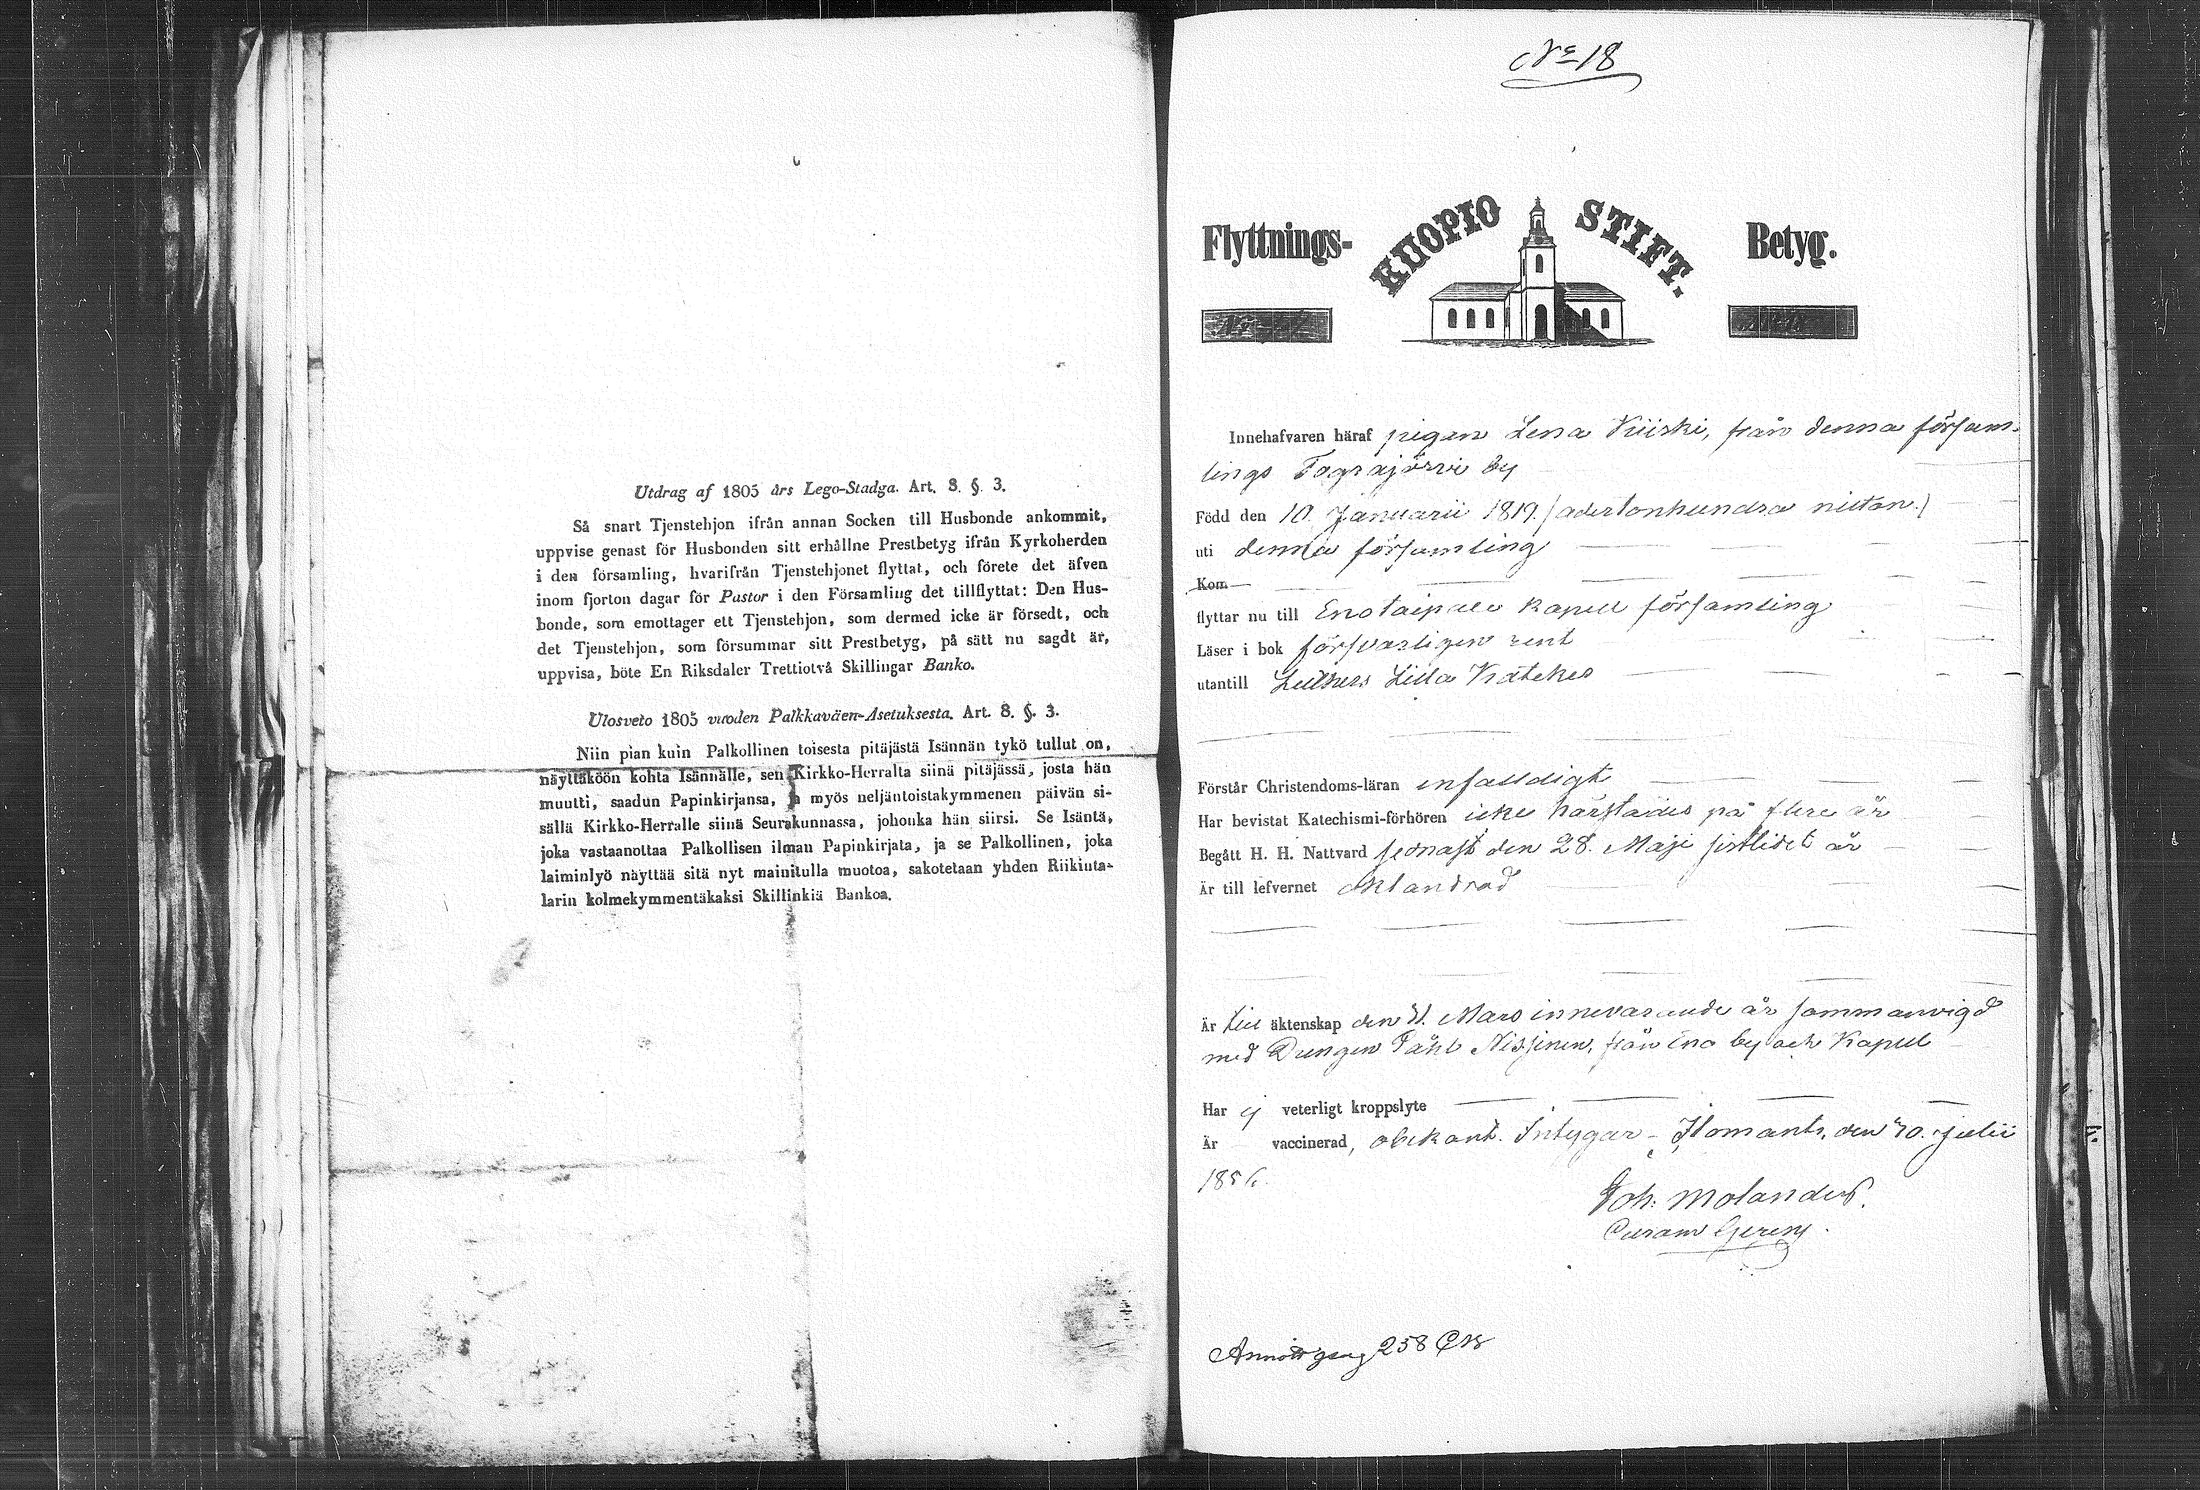 Utdrag af 1805 års Lego-Stadga. Art. 8. §. 3.
Så snart Tjenstehjon ifrån annan Socken till Husbonde ankommit,
uppvise genast för Husbonden sitt erhållne Prestbetyg ifrån Kyrkoherden
i den församling, hvarifrån Tjenstehjonet flyttat, och förete det äfven
inom fjorton dagar för Pastor i den Församling det tillflyttat: Den Hus-
bonde, som emottager ett Tjenstehjon, som dermed icke är försedt, och
det Tjenstehjon, som försummar sitt Prestbetyg, på sätt nu sagdt är,
uppvisa, böte En Riksdaler Trettiotvå Skillingar Banko.
Ulosveto 1805 vuoden Palkkaväen-Asetuksesta. Art. 8. §. 3.
Niin pian kuin Palkollinen toisesta pitäjästä Isännän tykö tullut on,
näyttäköön kohta Isännälle, sen Kirkko-Herralta siinä pitäjässä, josta hän
muutti, saadun Papinkirjansa, ja myös neljäntoistakymmenen päivän si-
sällä Kirkko-Herralle siinä Seurakunnassa, johonka hän siirsi. Se Isäntä,
joka vastaanottaa Palkollisen ilman Papinkirjata, ja se Palkollinen, joka
laiminlyö näyttää sitä nyt mainitulla muotoa, sakotetaan yhden Riikinta-
larin kolmekymmentäkaksi Skillinkiä Bankoa.
No 18
Flyttnings- KUOPIO STIFT. Betyg.
Innehafvaren häraf pigan Lena Kiiski, från denna församl-
lings by
Född den 10. Januarii 1819. (adertonhundra nitton.)
uti denna församling
Kom
flyttar nu till Eno kapell församling
Läser i bok försvarligen rent
utantill Lutheri Lilla Katekes
Förstår Christendoms-läran enfaldigt
Har bevistat Katechismi-förhören icke härstädes på flere år
Begått H. H. Nattvard sednast den 28. Maji sistlidet år
Är till lefvernet oklandrad
Är till äktenskap den 31. Mars innevarande år sammanvigd
med Drengen Påhl Nissinen, från Eno by och Kapell
Har ej veterligt kroppslyte
Är vaccinerad, obekant. Intygar – Ilomants, den 10. Julii
185
Joh: Molander.
Curam Gerens.
258